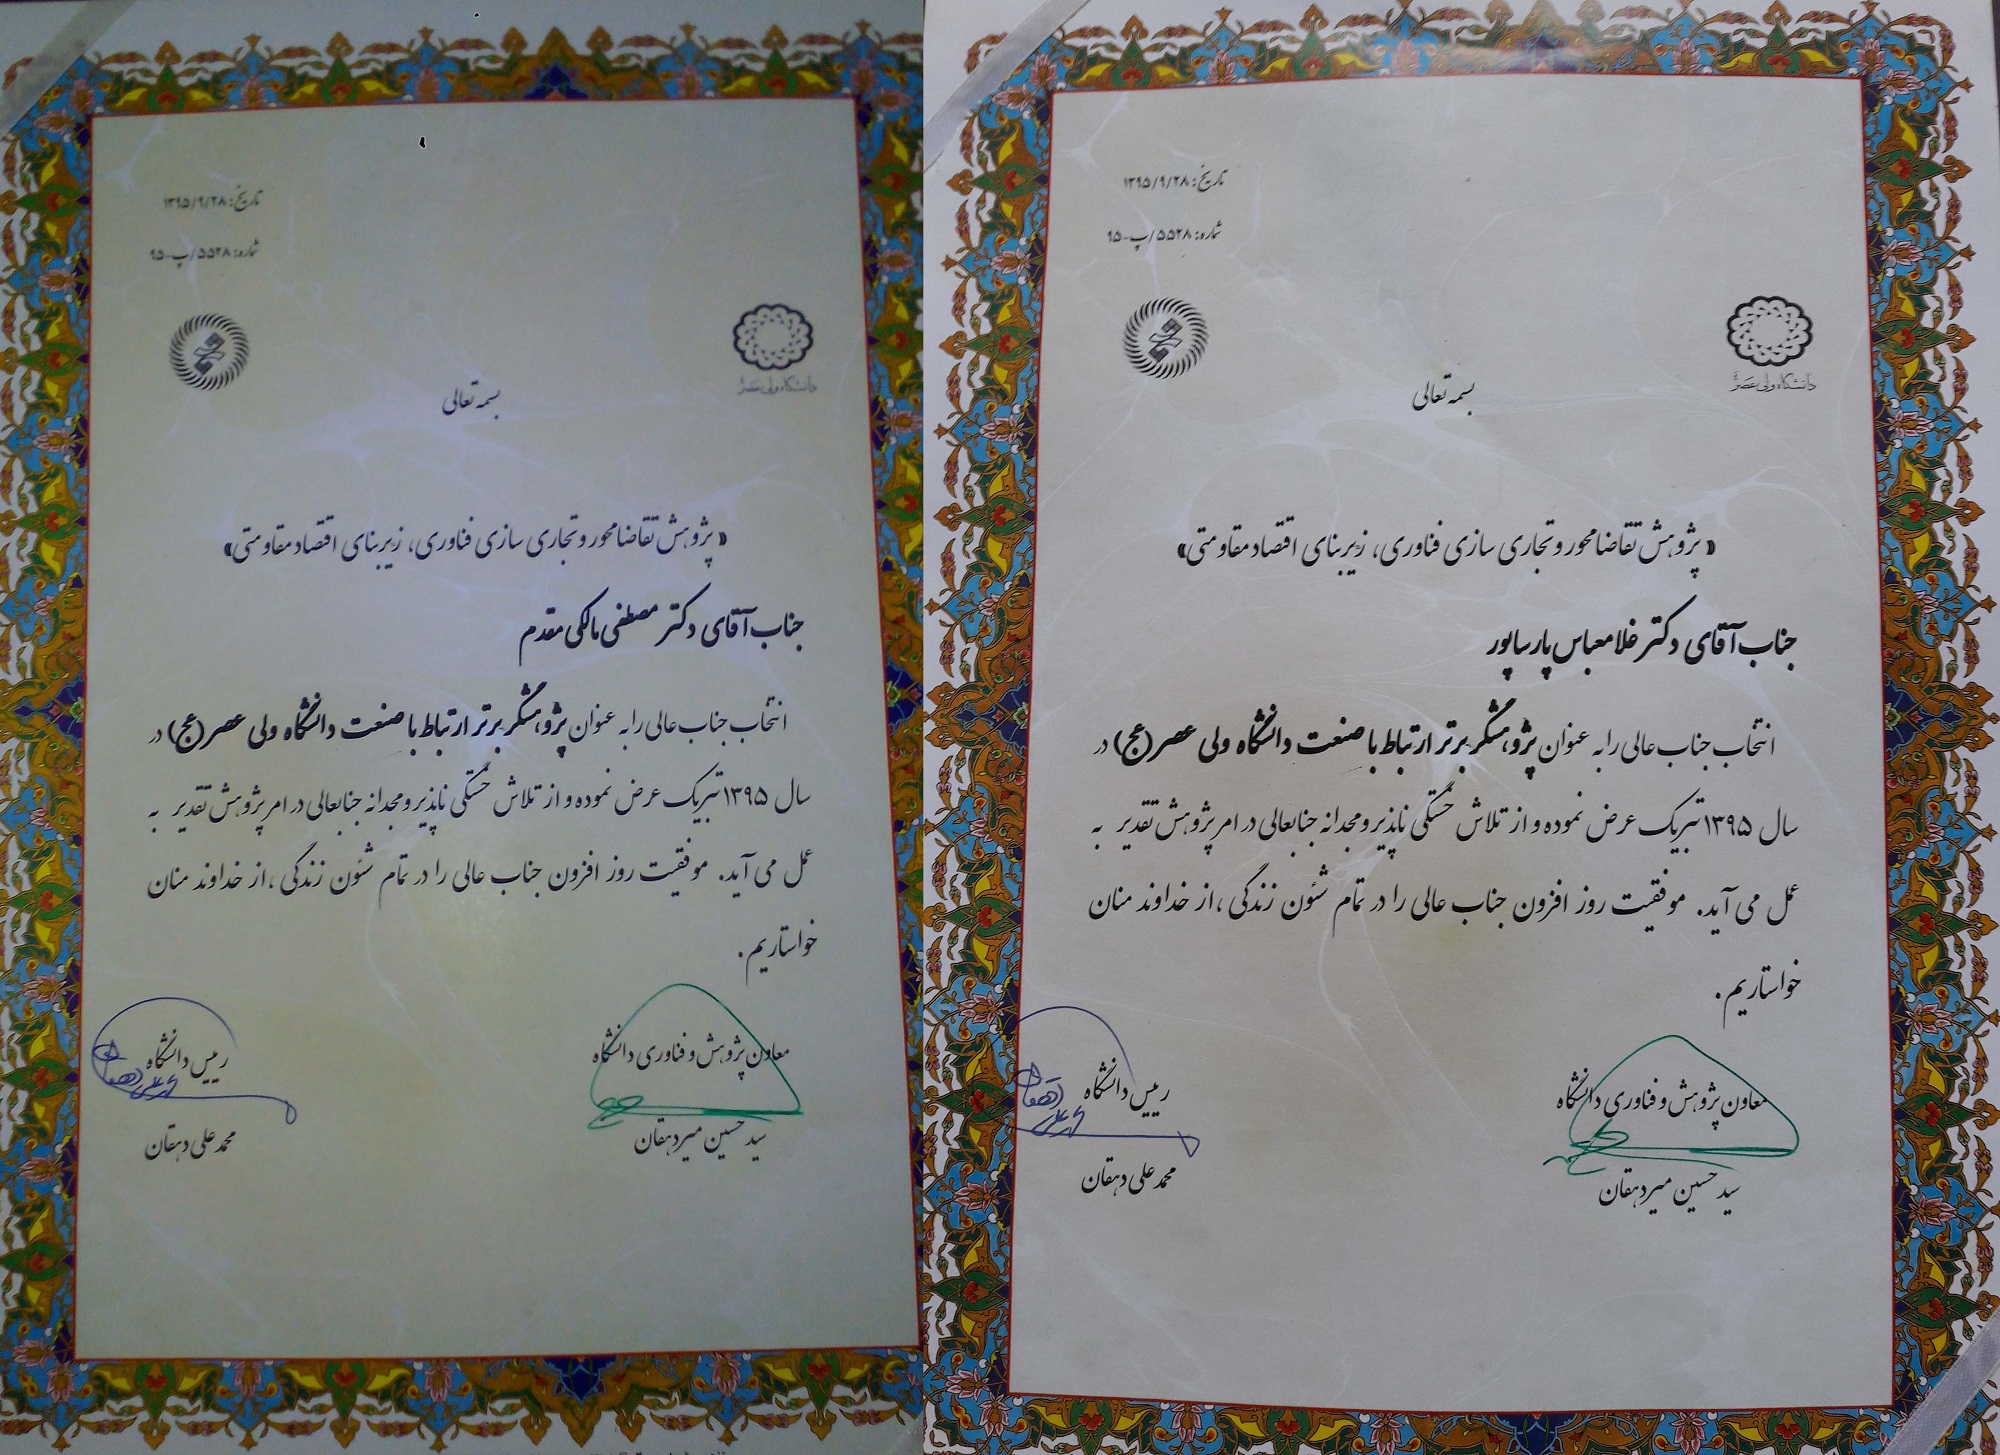 تاریخ: ۱۳۹۵/۹/۲۸
شماره: ۵۵۲۸/پ-۹۵
دانشگاه ولی عصر
بسمه تعالی
« پژوهش تقاضا محور و تجاری سازی فناوری، زیربنای اقتصاد مقاومتی»
جناب آقای دکتر غلامعباس پارساپور
انتخاب جناب عالی را به عنوان پژوهشگر برتر ارتباط با صنعت دانشگاه ولی عصر (عج) در
سال ۱۳۹۵ تبریک عرض نموده و از تلاش خستگی ناپذیر و مجدانه جنابعالی در امر پژوهش تقدیر به
عمل می آید. موفقیت روز افزون جناب عالی را در تمام شئون زندگی ، از خداوند منان
خواستاریم.
معاون پژوهش و فناوری دانشگاه
سید حسین میردهقان
رییس دانشگاه
محمد علی دهقان
تاریخ: ۱۳۹۵/۹/۲۸
شماره: ۵۵۲۸/پ-۹۵
دانشگاه ولی عصر
بسمه تعالی
« پژوهش تقاضا محور و تجاری سازی فناوری، زیربنای اقتصاد مقاومتی»
جناب آقای دکتر مصطفی مالکی مقدم
انتخاب جناب عالی را به عنوان پژوهشگر برتر ارتباط با صنعت دانشگاه ولی عصر (عج) در
سال ۱۳۹۵ تبریک عرض نموده و از تلاش خستگی ناپذیر و مجدانه جنابعالی در امر پژوهش تقدیر به
عمل می آید. موفقیت روز افزون جناب عالی را در تمام شئون زندگی ، از خداوند منان
خواستاریم.
معاون پژوهش و فناوری دانشگاه
سید حسین میردهقان
رییس دانشگاه
محمد علی دهقان